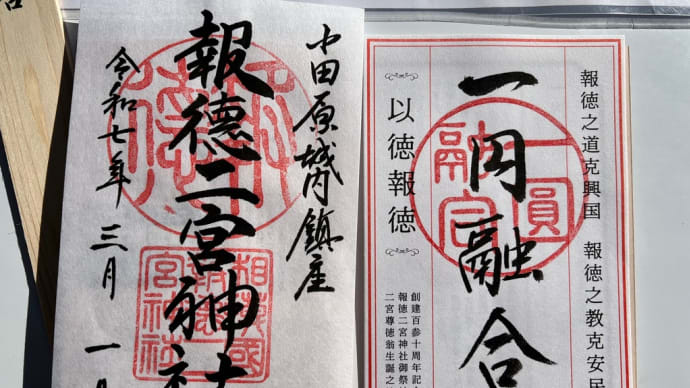 小田原城内鎮座
報徳二宮神社
令和七年 三月 一
相模國
報徳二
宮神社
報徳之道克興国 報徳之教克安民
一円融合
一圓
融合
以徳報徳
創建百参十周年記
報徳二宮神社御祭
二宮尊徳翁生誕之